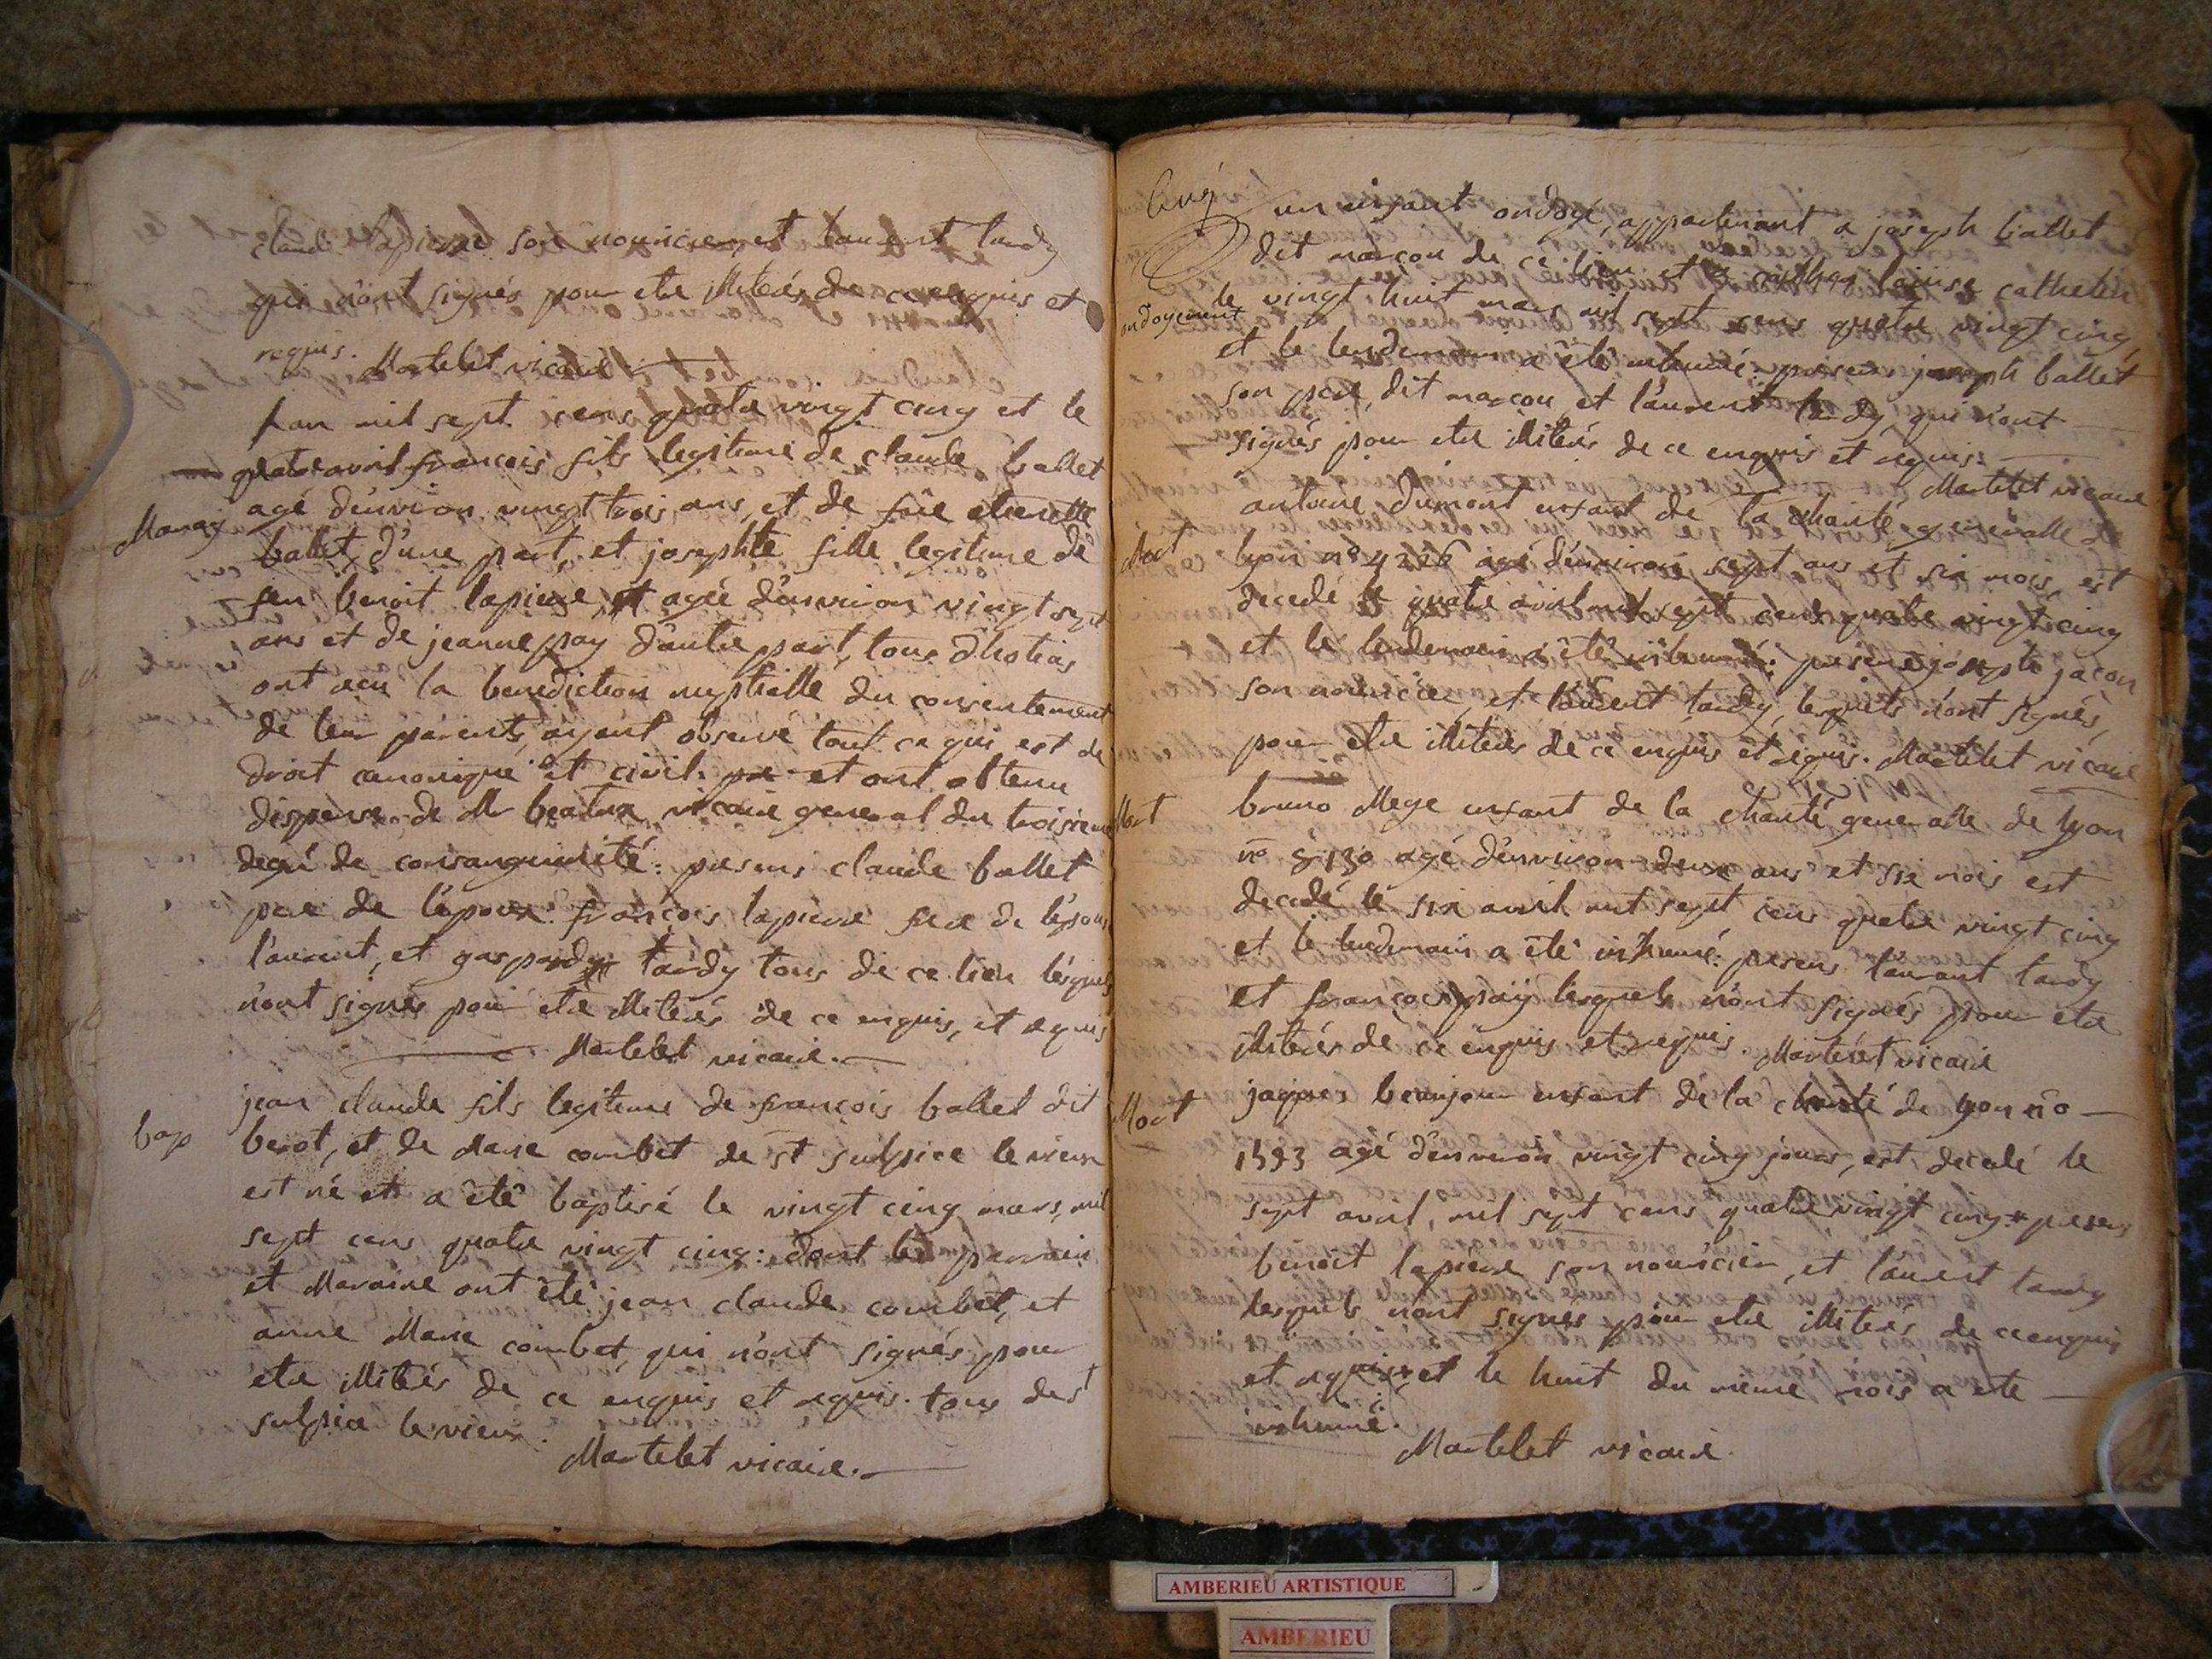 claude lapierre son nouricier, et laurent tardy
qui n'ont signés pour etre illiterés de ce enquis et
requis. Martelet vicaire
l'an mil sept cens quatre vingt cinq et le
quatre avril francois fils legitime de claude ballet
Mariag
agé d'environ vingt trois ans, et de fûe etienette
ballet, d'une part, et josephte fille legitime de
feu benoit lapierre, et agée d'environ vingt sept
ans et de jeanne pay d'autre part, tous d'hotias
ont recu la benediction nuptialle du consentement
de leur parents, ayant observé tout ce qui est de
droit canonique et civil. et ont obtenu
dispense de Mr vicaire general du troisieme
degré de consanguinité: presens claude ballet
pere de l'epoux. françois lapierre frere de l'epouse
laurent, et gaspard tardy tous de ce lieu lesquels
n'ont signés pour etre illiterés de ce enquis, et requis
Martelet vicaire.
bap
jean claude fils legitime de françois ballet dit
berot, et de Marie combet de st sulpice le vieux
est né et a êté baptisé le vingt cinq mars, mil
sept cens quatre vingt cinq: dont les parrain
et Maraine ont êté jean claude combet, et
anne Marie combet, qui n'ont signés pour
etre illiterés de ce enquis et requis. tous de st
sulpice le vieux.
Martelet vicaire.
un enfant ondoyé, appartenant a joseph ballet
dit marcon de ce lieu et a louise cathelin
ondoyement
le vingt huit mars mil sept cens quatre vingt cinq
et le lendemain a êté inhumé: presens joseph ballet
son pere, dit marcon, et laurent tardy, qui n'ont
signés pour etre illiterés de ce enquis et requis.
Martelet vicaire
Mort
antoine dumont enfant de la charité generalle de
lyon n° 4226 agé d'environ sept ans et six mois, est
decedé le quatre avril mil sept cens quatre vingt cinq
et le lendemain a êté inhumé: presens josephte jacon
son nourice, et laurent tardy, lesquels n'ont signés,
pour etre illiterés de ce enquis et requis. Martelet vicaire
Mort
bruno Mege enfant de la charité generalle de lyon
n° 8130 agé d'environ deux ans et six mois est
decedé le six avril mil sept cens quatre vingt cinq
et le lendemain a êté inhumé: presens laurant tardy
et françois pay lesquels n'ont signés pour etre
illiterés de ce enquis et requis. Martelet vicaire
Mort
jaques beaujour enfant de la charité de lyon n°
1593 agé d'environ vingt cinq jours, est decedé le
sept avril, mil sept cens quatre vingt cinq presens
benoit lapierre son nouricier, et laurent tardy
lesquels n'ont signés pour etre illiterés de ce enquis
et requis, et le huit du même mois a ete
inhumé.
Martelet vicaire.
AMBERIEU ARTISTIQUE
AMBERIEU